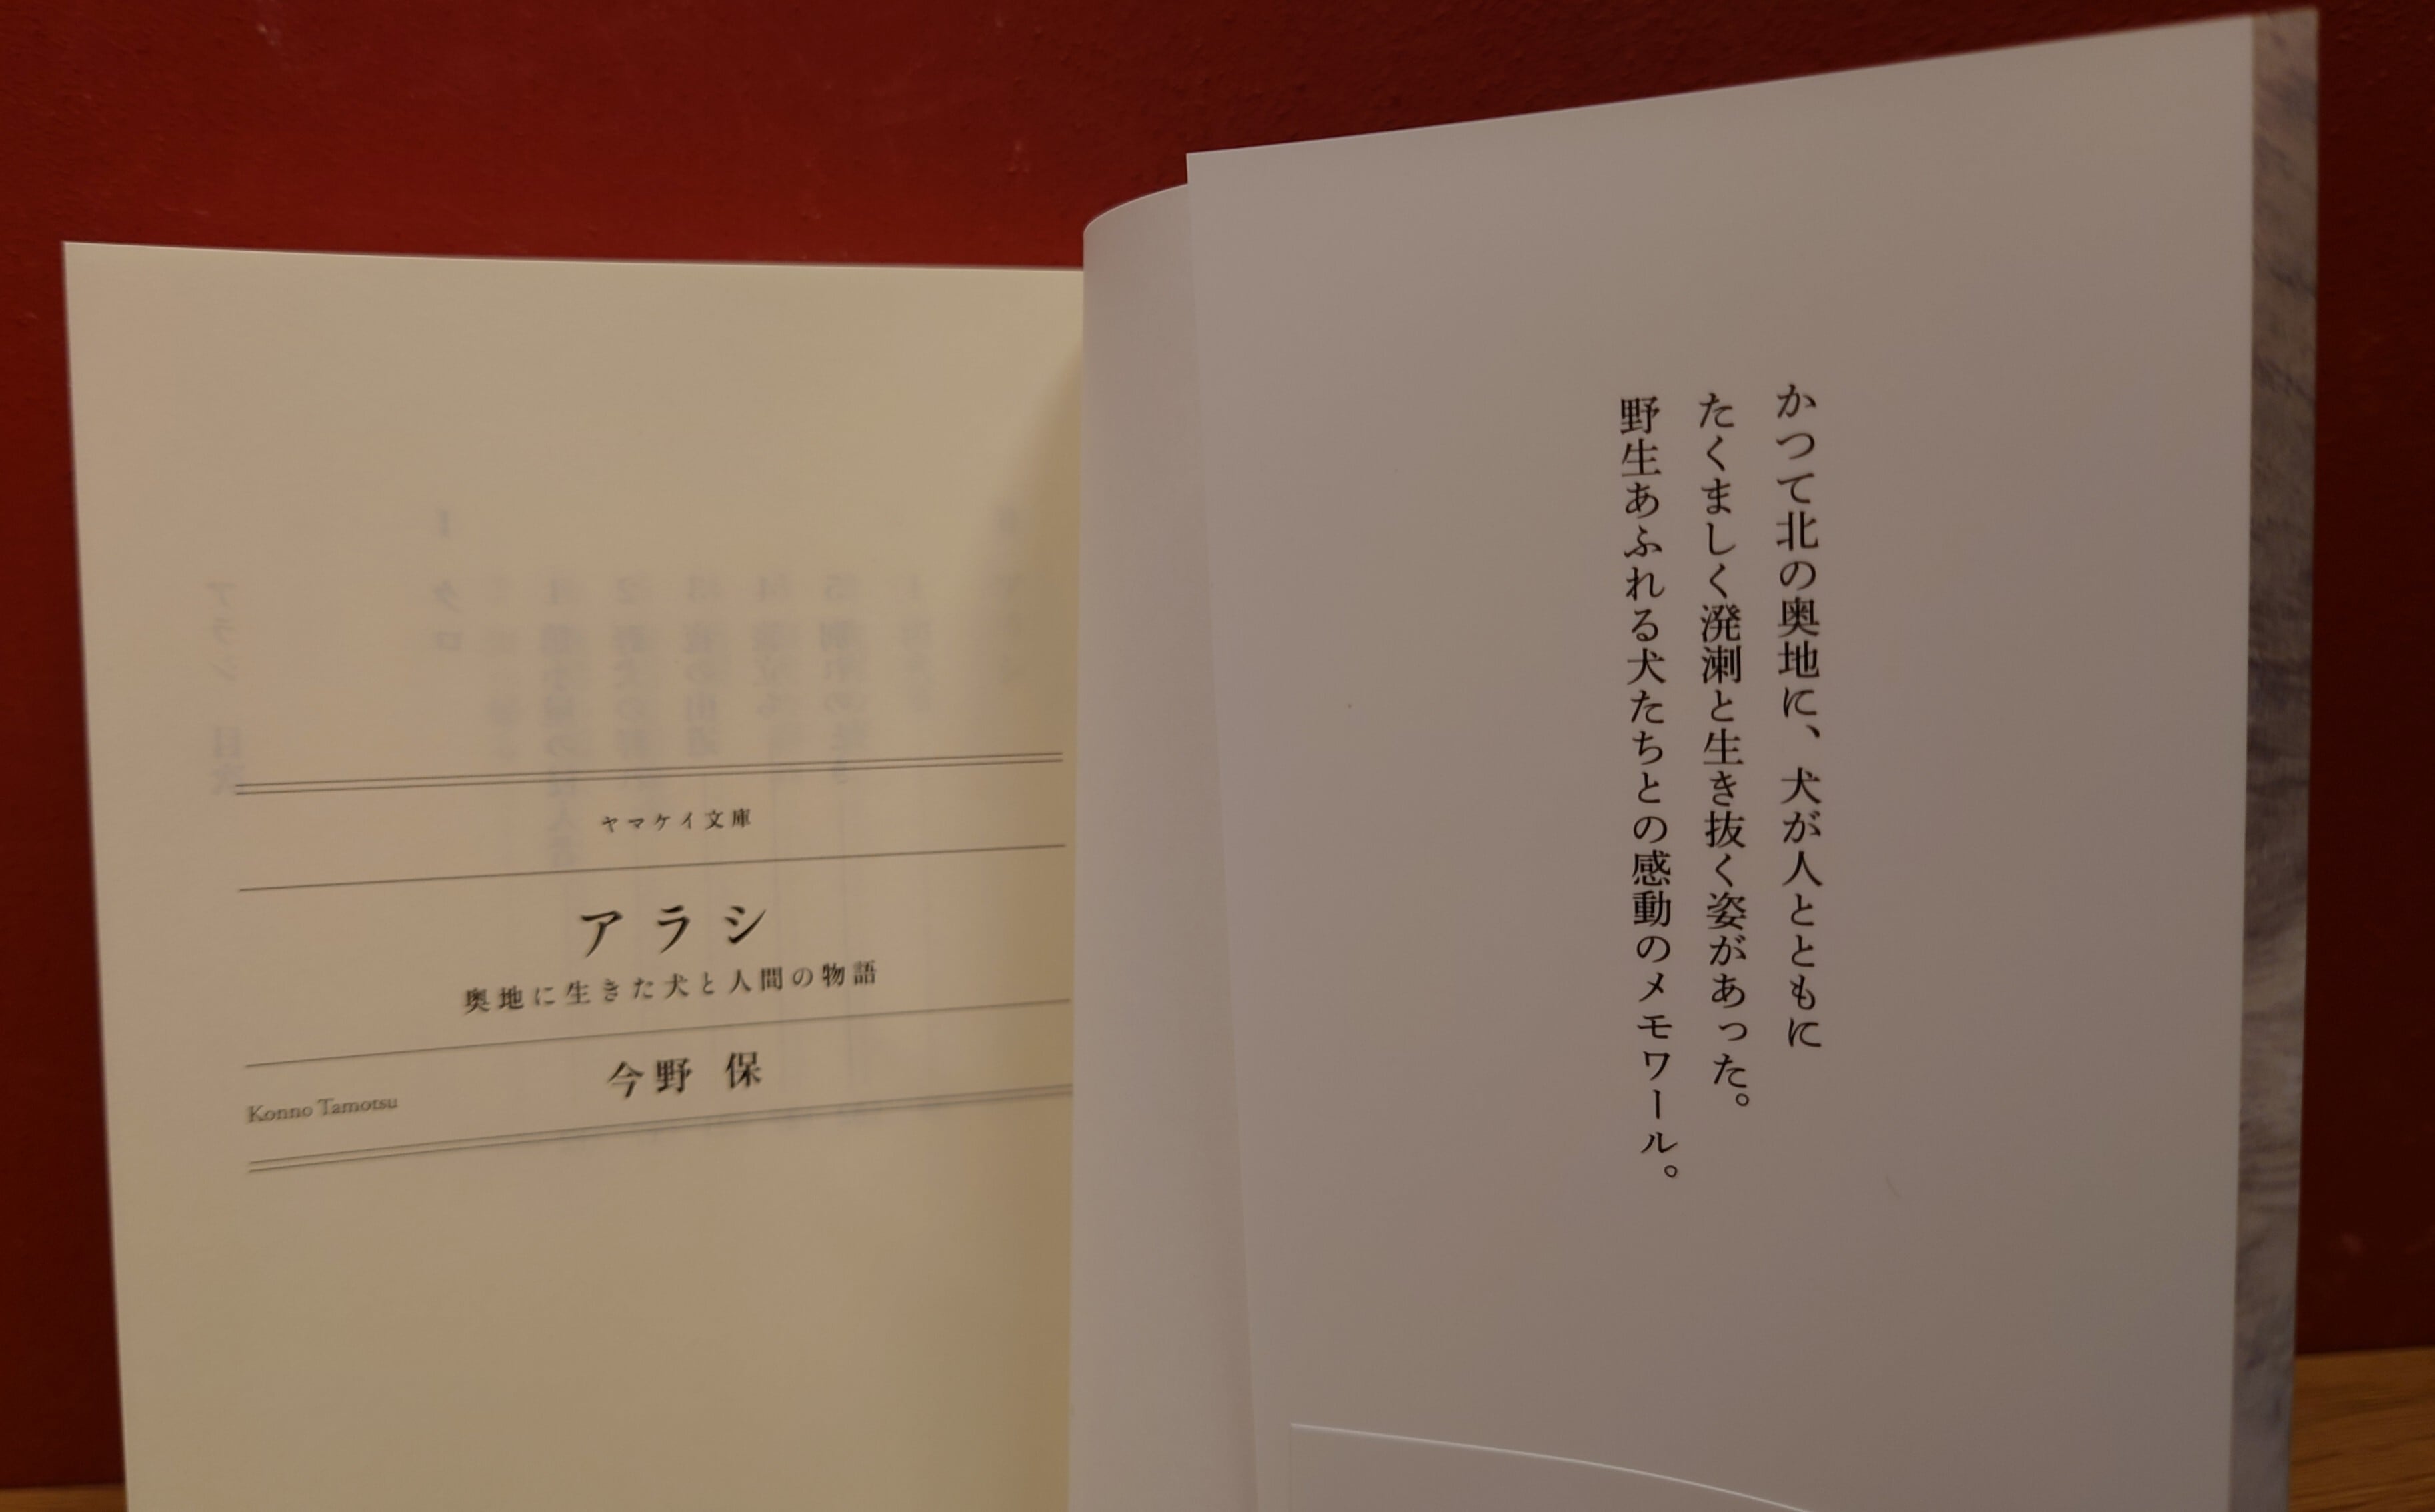 かつて北の奥地に、犬が人とともに
たくましく溌溂と生き抜く姿があった。
野生あふれる犬たちとの感動のメモワール。
ヤマケイ文庫
アラシ
奥地に生きた犬と人間の物語
今野 保
Konno Tamotsu
アラシ 目次
I タロ